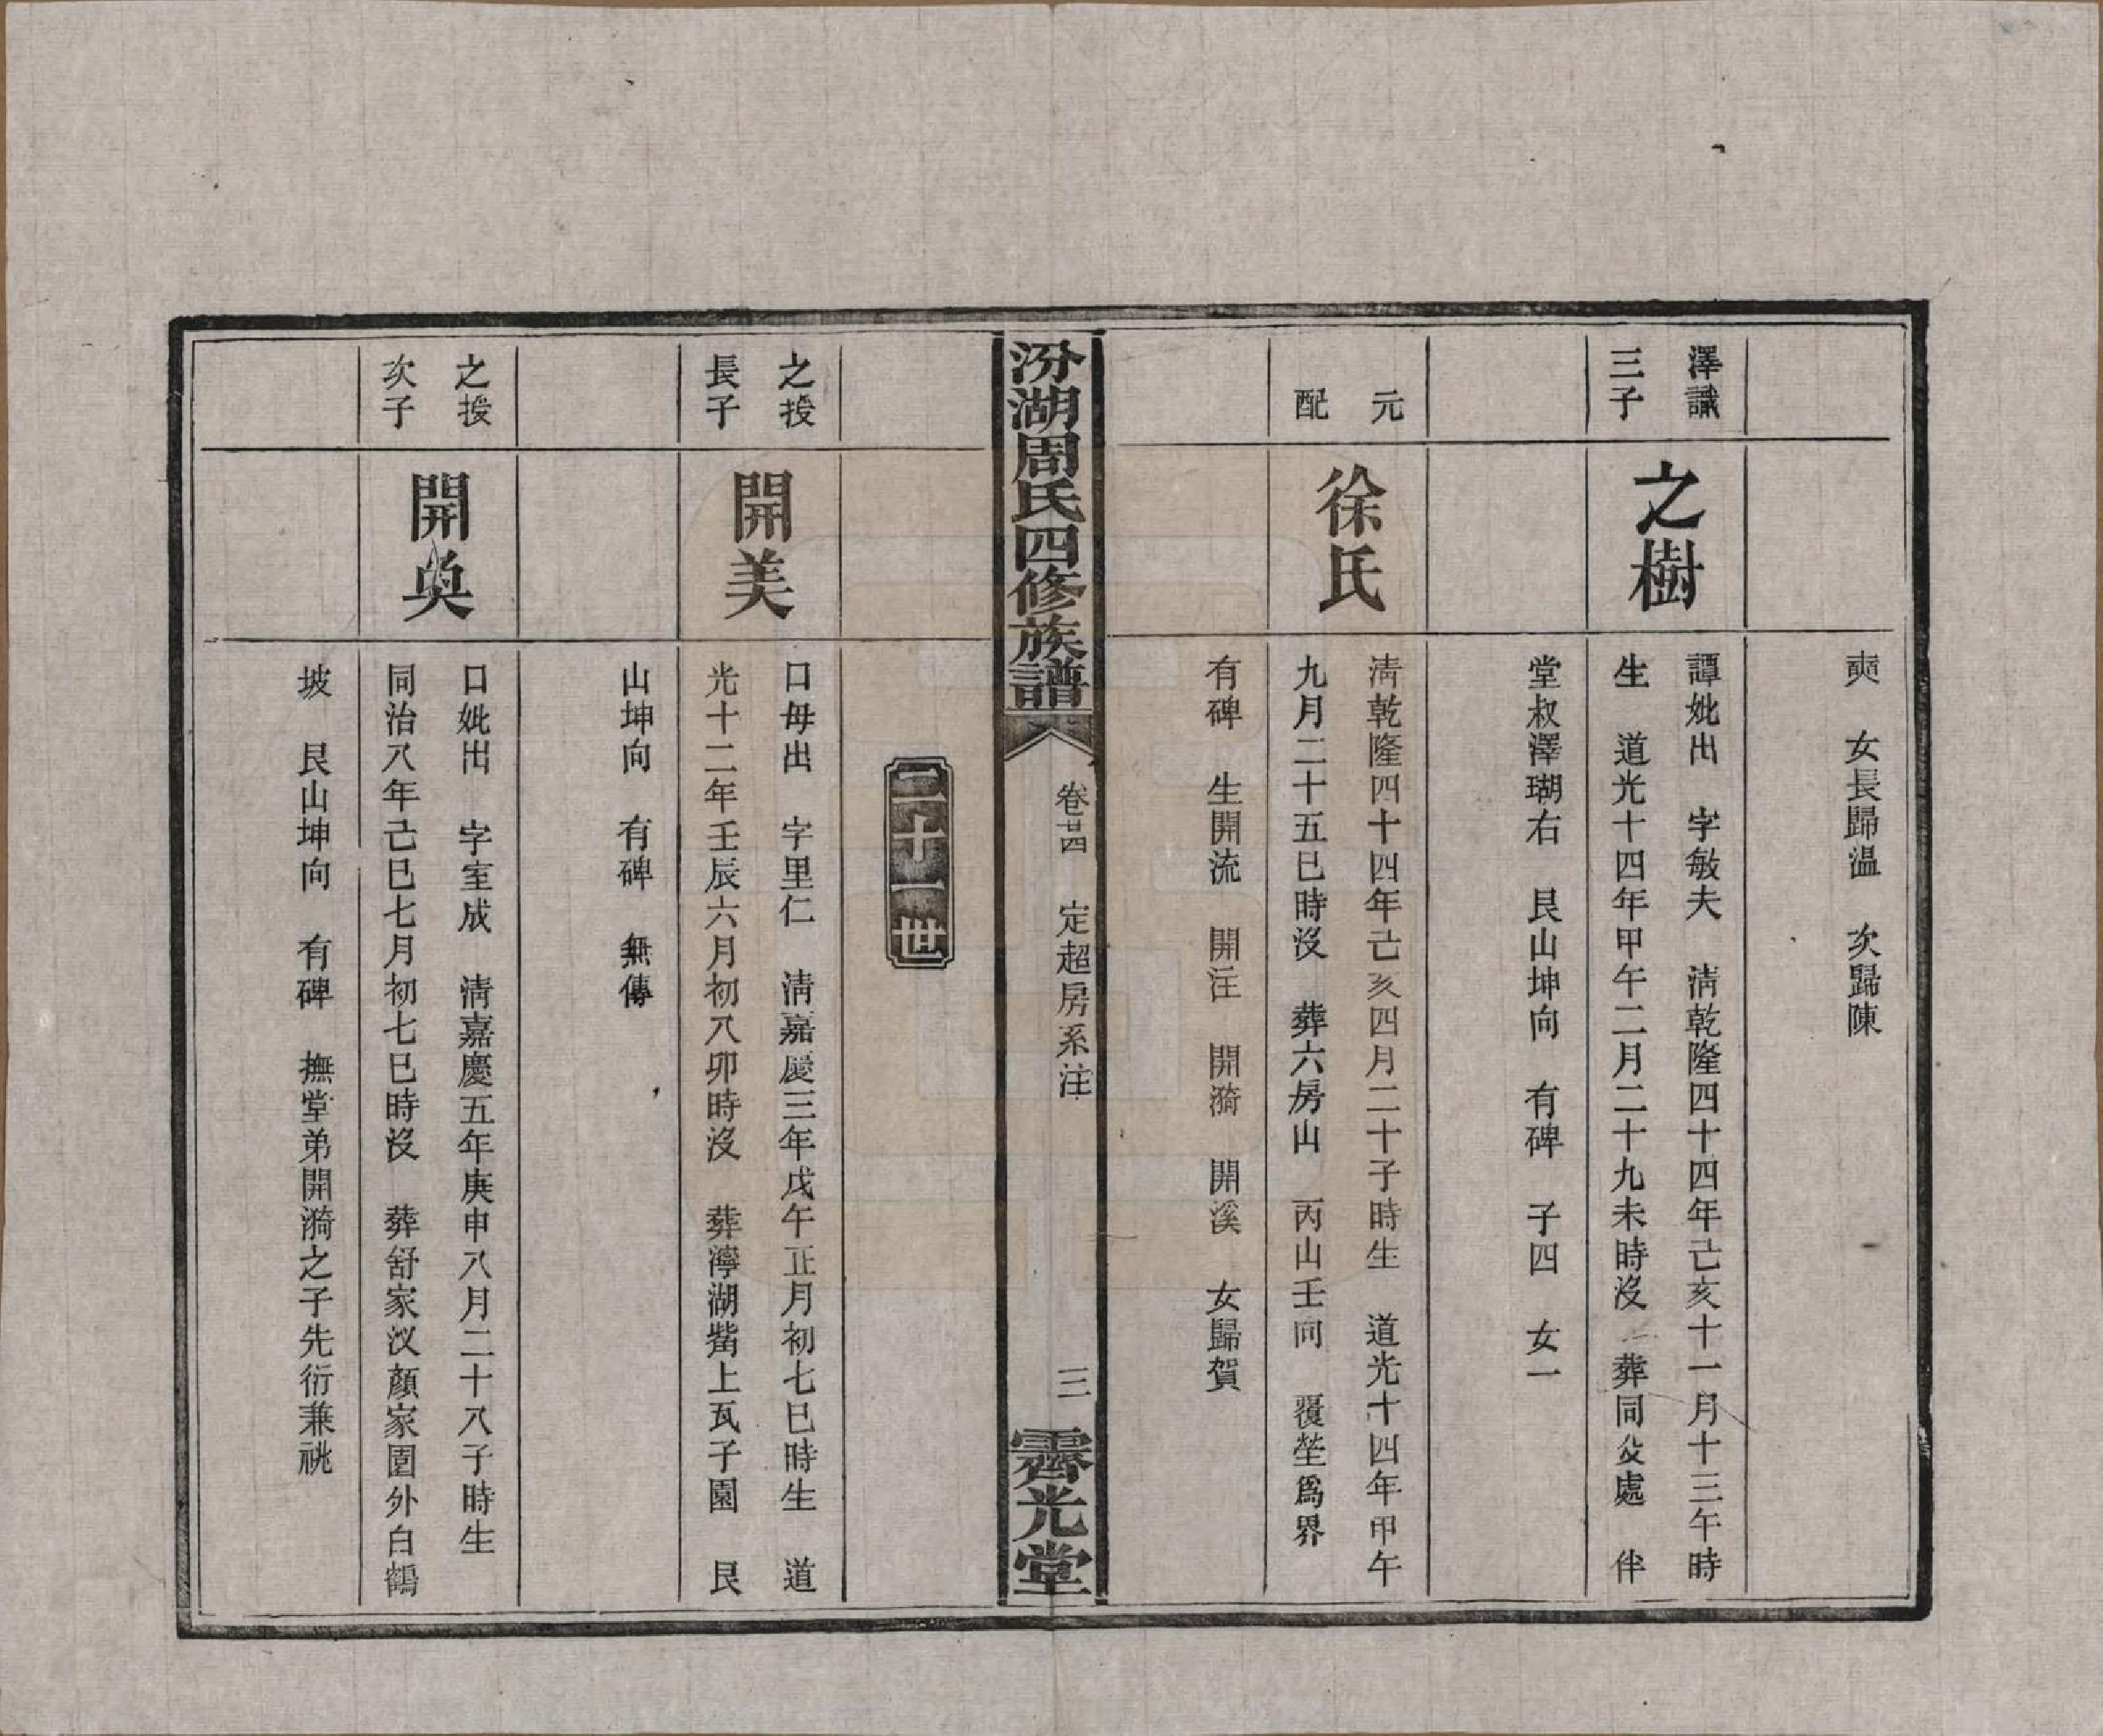 奭　女長歸溫　次歸陳
澤識
三子
之樹
譚妣出　字敏夫　淸乾隆四十四年己亥十一月十三午時
生　道光十四年甲午二月二十九未時沒　葬同父處　伴
堂叔澤瑚右　艮山坤向　有碑　子四　女一
元
配
徐氏
淸乾隆四十四年己亥四月二十子時生　道光十四年甲午
九月二十五巳時沒　葬六房山　丙山壬向　覆塋爲界
有碑　生開流　開注　開漪　開溪　女歸賀
汾湖周氏四修族譜
卷廿四　定超房系注
三
霽光堂
二十一世
之授
長子
開美
口母出　字里仁　淸嘉慶三年戊午正月初七巳時生　道
光十二年壬辰六月初八卯時沒　葬濘湖觜上瓦子園　艮
山坤向　有碑　無傳
之授
次子
開奐
口妣出　字室成　淸嘉慶五年庚申八月二十八子時生
同治八年己巳七月初七巳時沒　葬舒家汊顏家園外白鶴
坡　艮山坤向　有碑　撫堂弟開漪之子先衍兼祧